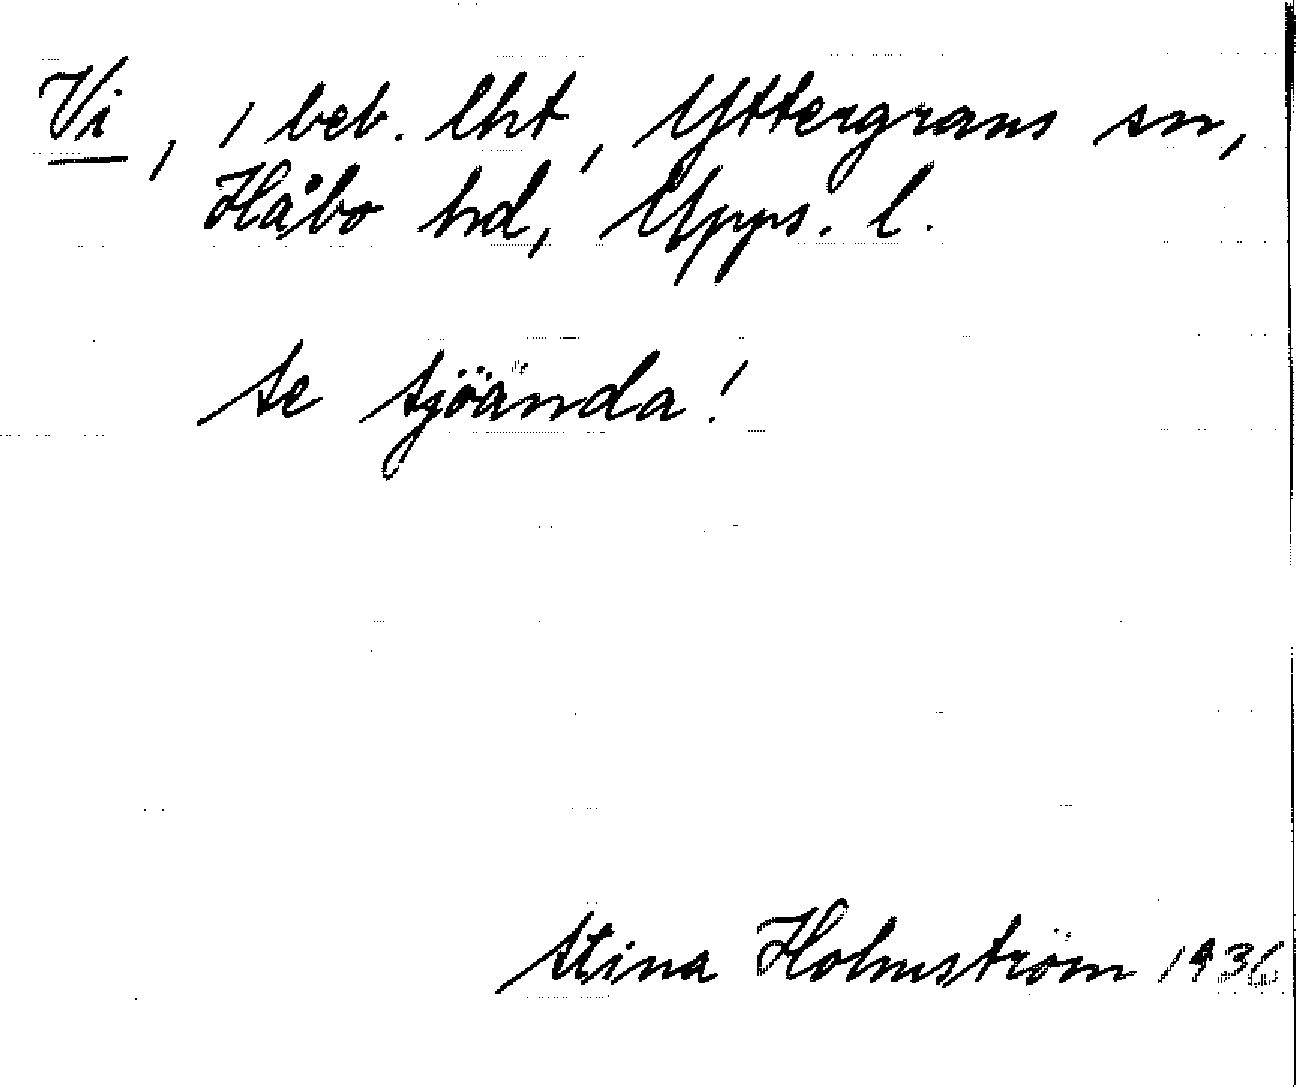 Vi, 1 beb. lht, Yttergrans sn,
Håbo hd, Upps. l.
Se Sjöända!
Stina Holmström 1936